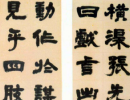 橫渠張先
曰戲言出
動作於謀
見乎四肢